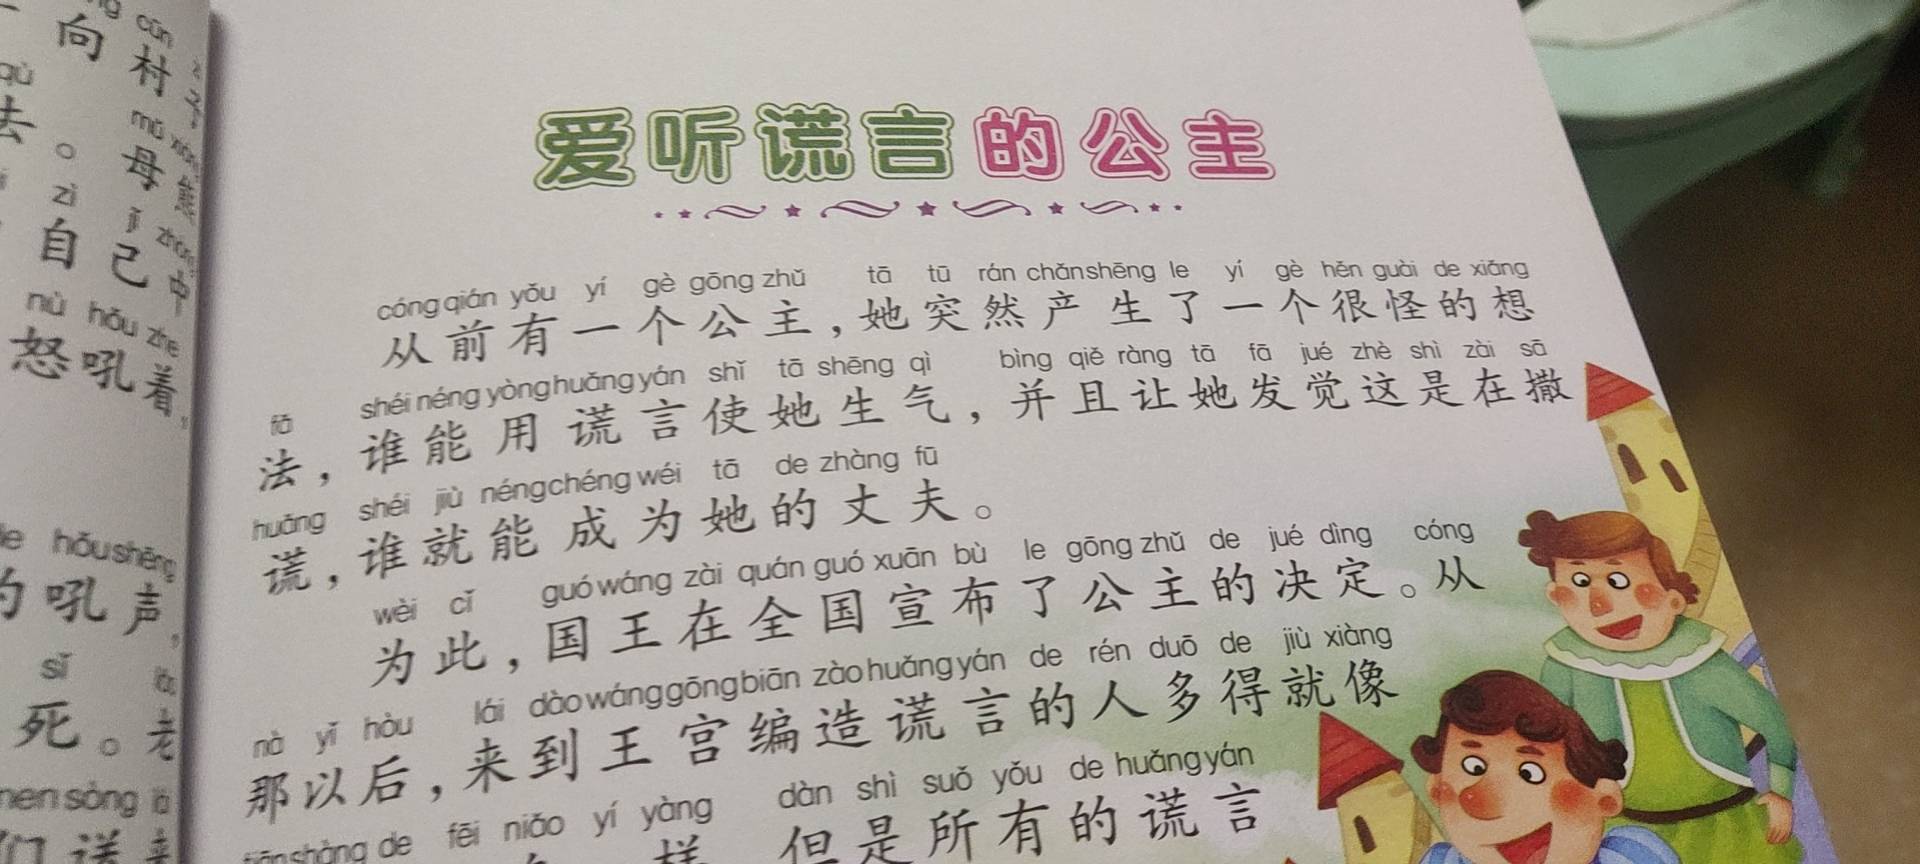 cūn
向村子
qù
mǔ xióng
去。母熊
zì jǐ zhōng
自己中
nù hǒu zhe
怒吼着,
hǒu shēng
吼声,
sǐ
死。老
sòng
们送
爱听谎言的公主
cóng qián yǒu yí gè gōng zhǔ tā tū rán chǎn shēng le yí gè hěn guài de xiǎng
从前有一个公主,她突然产生了一个很怪的想
fǎ shéi néng yòng huǎng yán shǐ tā shēng qì bìng qiě ràng tā fā jué zhè shì zài sā
法,谁能用谎言使她生气,并且让她发觉这是在撒
huǎng shéi jiù néng chéng wéi tā de zhàng fū
谎,谁就能成为她的丈夫。
wèi cǐ guó wáng zài quán guó xuān bù le gōng zhǔ de jué dìng cóng
为此,国王在全国宣布了公主的决定。从
nà yǐ hòu lái dào wáng gōng biān zào huǎng yán de rén duō de jiù xiàng
那以后,来到王宫编造谎言的人多得就像
tiān shàng de fēi niǎo yí yàng dàn shì suǒ yǒu de huǎng yán
样 但是所有的谎言